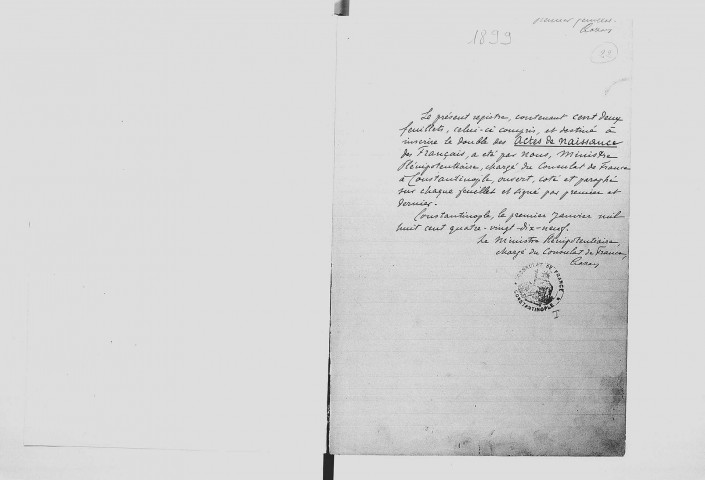 premier
1899
Le présent registre, contenant cent deux
feuillets, celui-ci compris, et destiné à
inscrire le double des Actes de naissance
des Français, a été par nous, Ministre
Plénipotentiaire, chargé du Consulat de France
à Constantinople, ouvert, coté et paraphé
sur chaque feuillet et signé par premier et
dernier.
Constantinople, le premier Janvier mil
huit cent quatre-vingt-dix-neuf.
Le Ministre Plénipotentiaire,
chargé du Consulat de France,
CONSULAT DE FRANCE
CONSTANTINOPLE